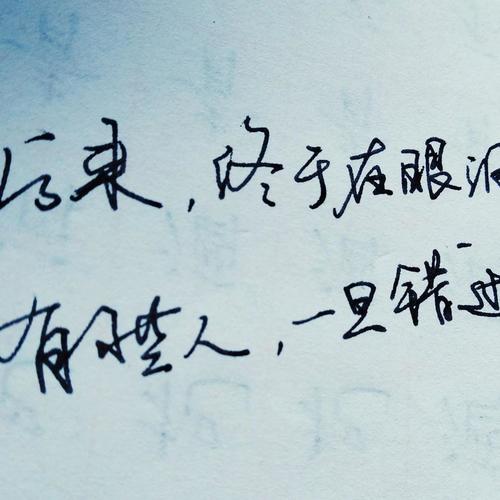 后来,终于在眼泪
有些人,一旦错过